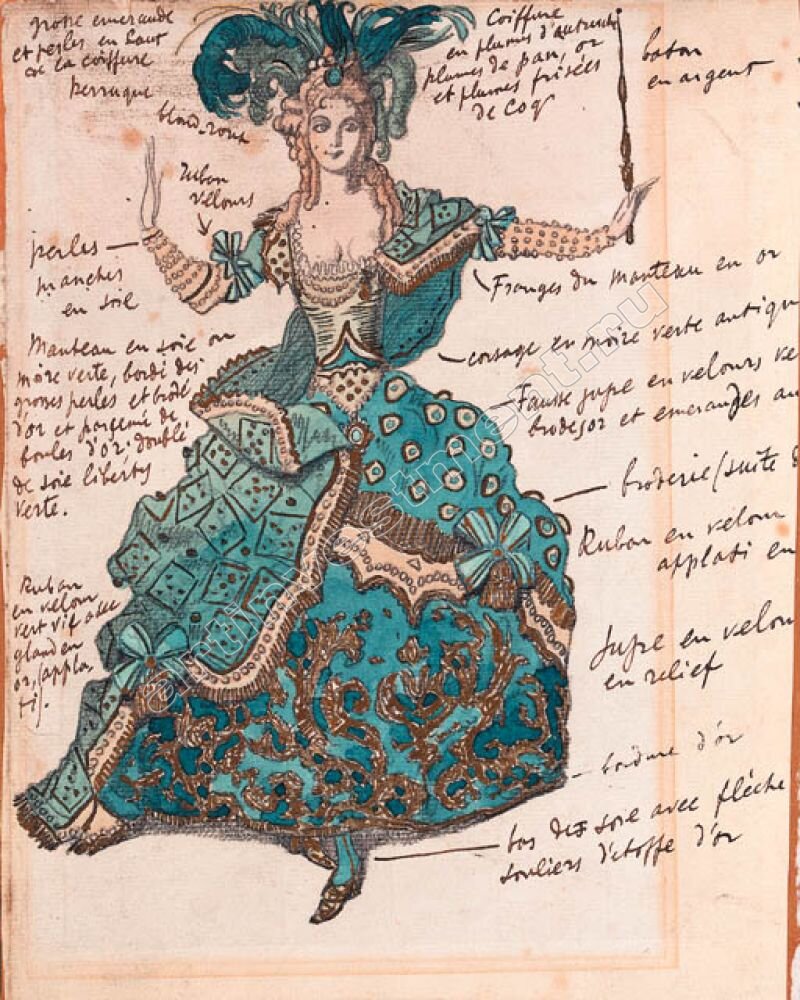 grosse emeraude
et perles en haut
de la coiffure
perruque
blond-roux
Coiffure
en plumes d'autruche
plumes de pan, or
et plumes frisées
de Coq
baton
en argent
ruban
velours
perles
manches
en soie
Franges du manteau en or
Manteau en soie ou
moire verte, bordé des
grosses perles et brodé
d'or et parsemé de
boules d'or, doublé
de soie liberty
verte.
corsage en moire verte antiqu
Fausse jupe en velours ve
brodé or et emeraudes au
broderie (suite d
Ruban en velour
applati en
Ruban
en velour
vert vif avec
gland en
or, (appla
ti).
Jupe en velou
en relief
bordure d'or
bas de soie avec flèche
souliers d'étoffe d'or
antiqinvestment.ru